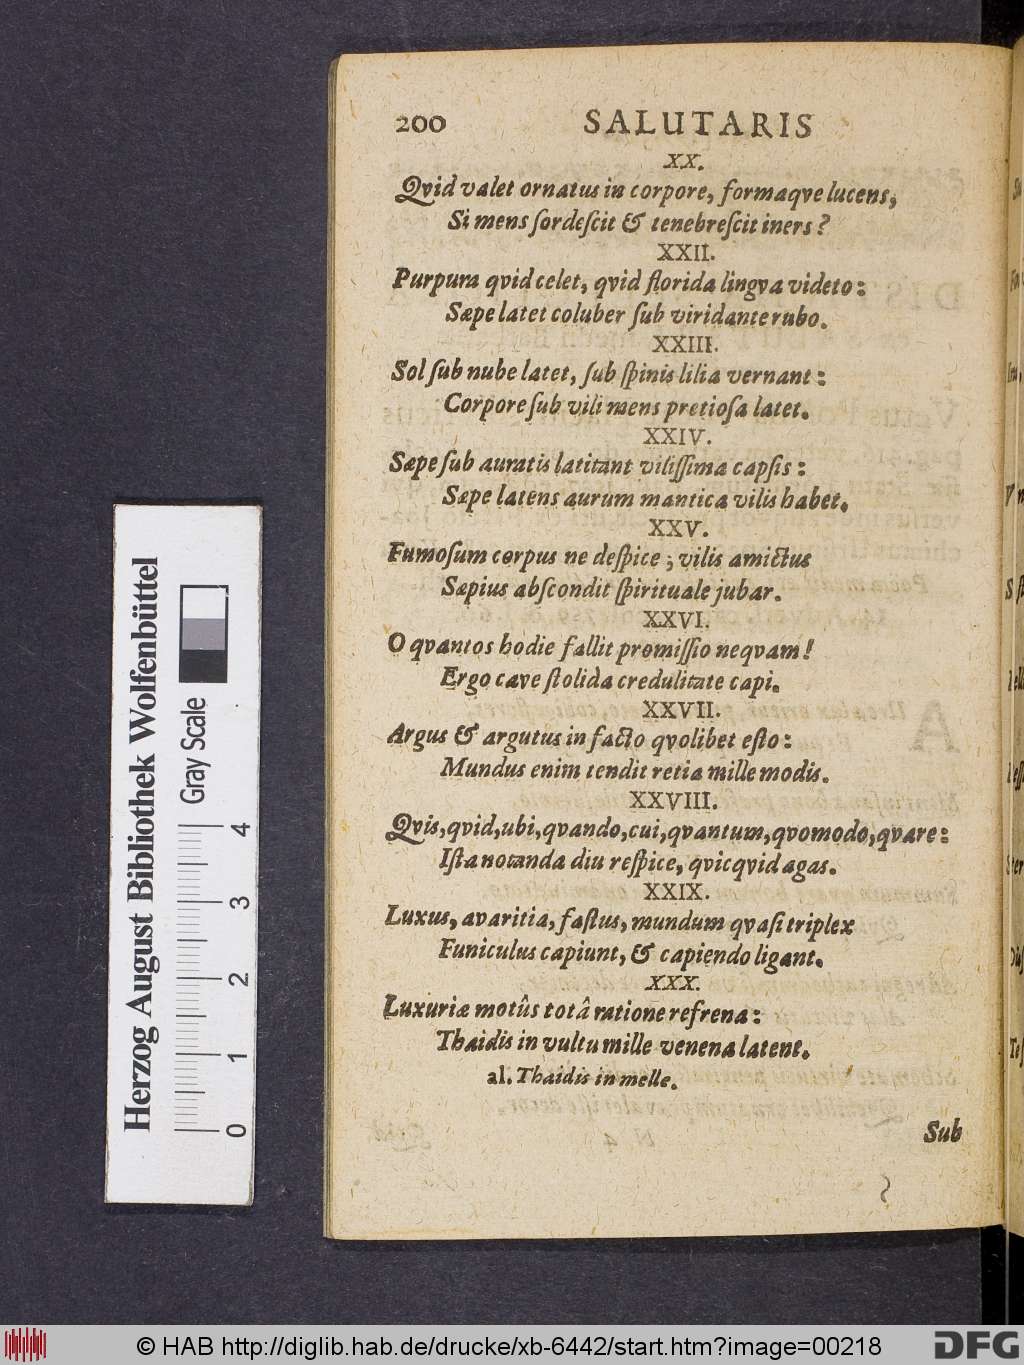 200 SALUTARIS
XX.
Qvid valet ornatus in corpore, formaqve lucens,
Si mens ſordeſcit & tenebreſcit iners?
XXII.
Purpura qvid celet, qvid florida lingva videto:
Sæpe latet coluber ſub viridante rubo.
XXIII.
Sol ſub nube latet, ſub ſpinis lilia vernant:
Corpore ſub vili mens pretioſa latet.
XXIV.
Sæpe ſub auratis latitant viliſſima capſis:
Sæpe latens aurum mantica vilis habet.
XXV.
Fumoſum corpus ne deſpice; vilis amictus
Sæpius abſcondit ſpirituale jubar.
XXVI.
O qvantos hodie fallit promiſſio neqvam!
Ergo cave ſtolida credulitate capi.
XXVII.
Argus & argutus in facto qvolibet eſto:
Mundus enim tendit retia mille modis.
XXVIII.
Qvis, qvid, ubi, qvando, cui, qvantum, qvomodo, qvare:
Iſta notanda diu reſpice, qvicqvid agas.
XXIX.
Luxus, avaritia, faſtus, mundum qvaſi triplex
Funiculus capiunt, & capiendo ligant.
XXX.
Luxuriæ motûs totâ ratione refrena:
Thaidis in vultu mille venena latent.
al. Thaidis in melle.
Sub
Herzog August Bibliothek Wolfenbüttel
Gray Scale
0 1 2 3 4
© HAB http://diglib.hab.de/drucke/xb-6442/start.htm?image=00218
DFG